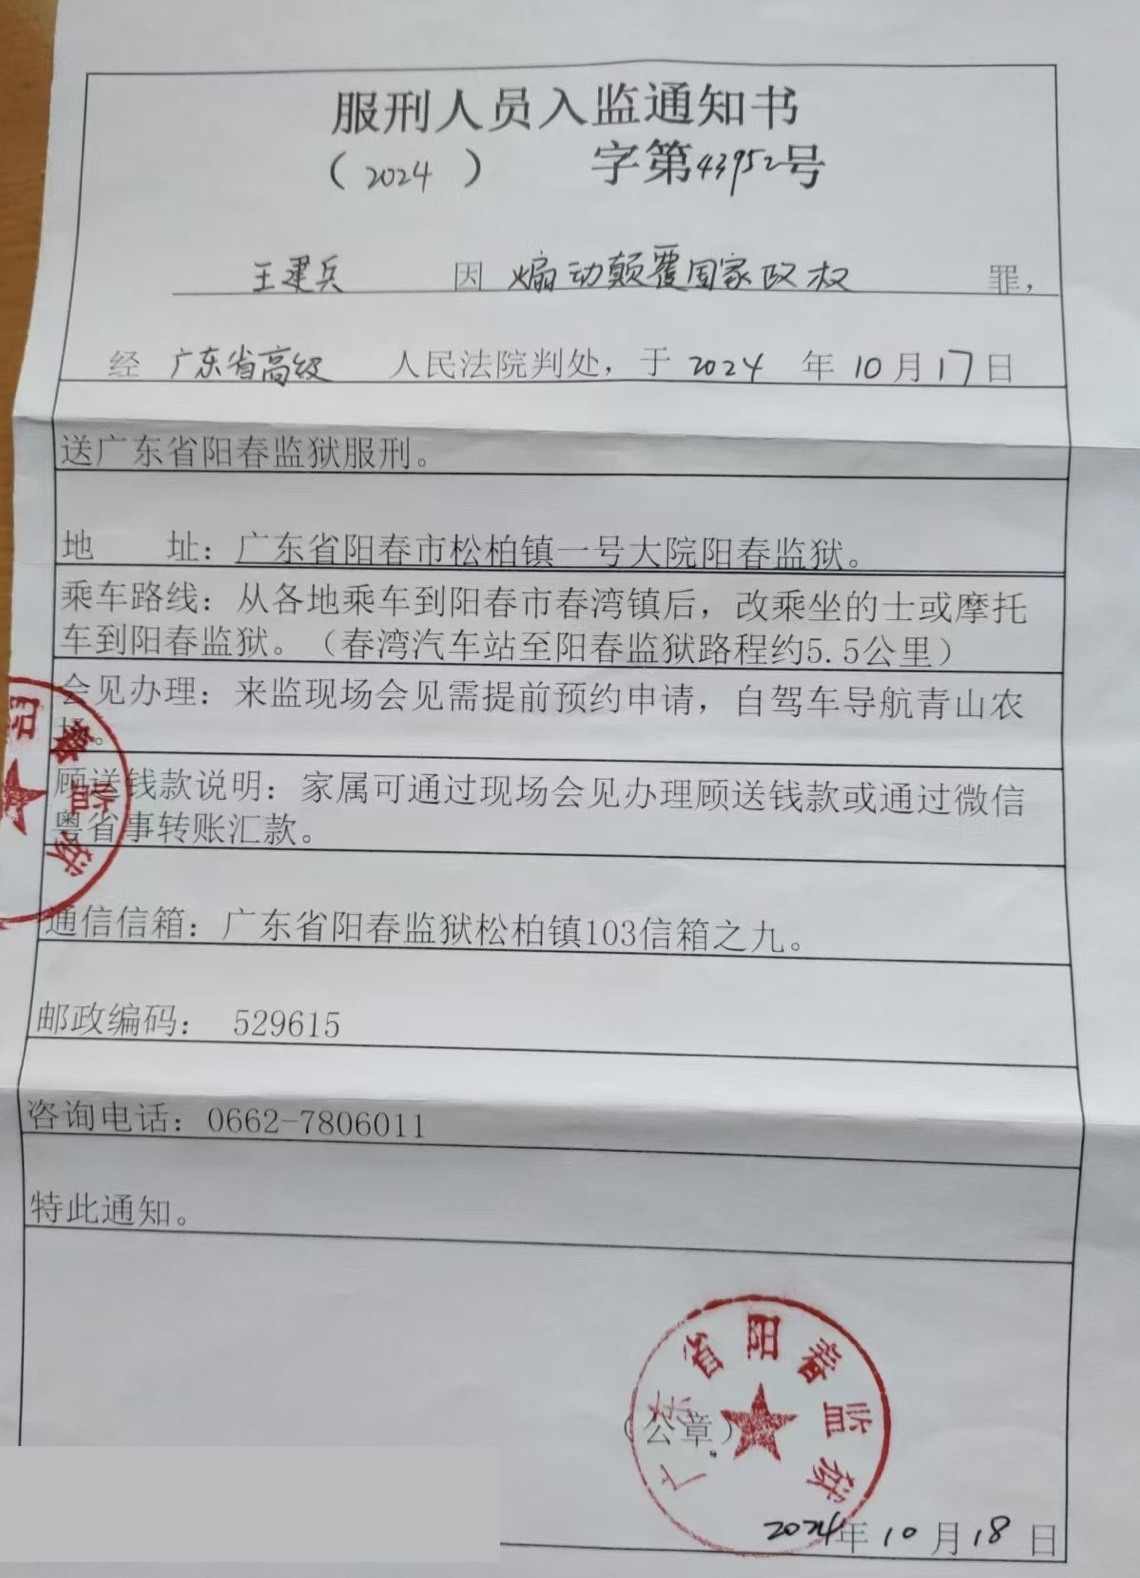 服刑人员入监通知书
（2024）　字第43952号
王建兵　因　煽动颠覆国家政权　罪，
经　广东省高级　人民法院判处，于2024年10月17日
送广东省阳春监狱服刑。
地　址：广东省阳春市松柏镇一号大院阳春监狱。
乘车路线：从各地乘车到阳春市春湾镇后，改乘坐的士或摩托
车到阳春监狱。（春湾汽车站至阳春监狱路程约5.5公里）
会见办理：来监现场会见需提前预约申请，自驾车导航青山农
。
阳春监狱
顾送钱款说明：家属可通过现场会见办理顾送钱款或通过微信
粤省事转账汇款。
通信信箱：广东省阳春监狱松柏镇103信箱之九。
邮政编码：　529615
咨询电话：0662-7806011
特此通知。
广东省阳春监狱
（公章）
2024年10月18日